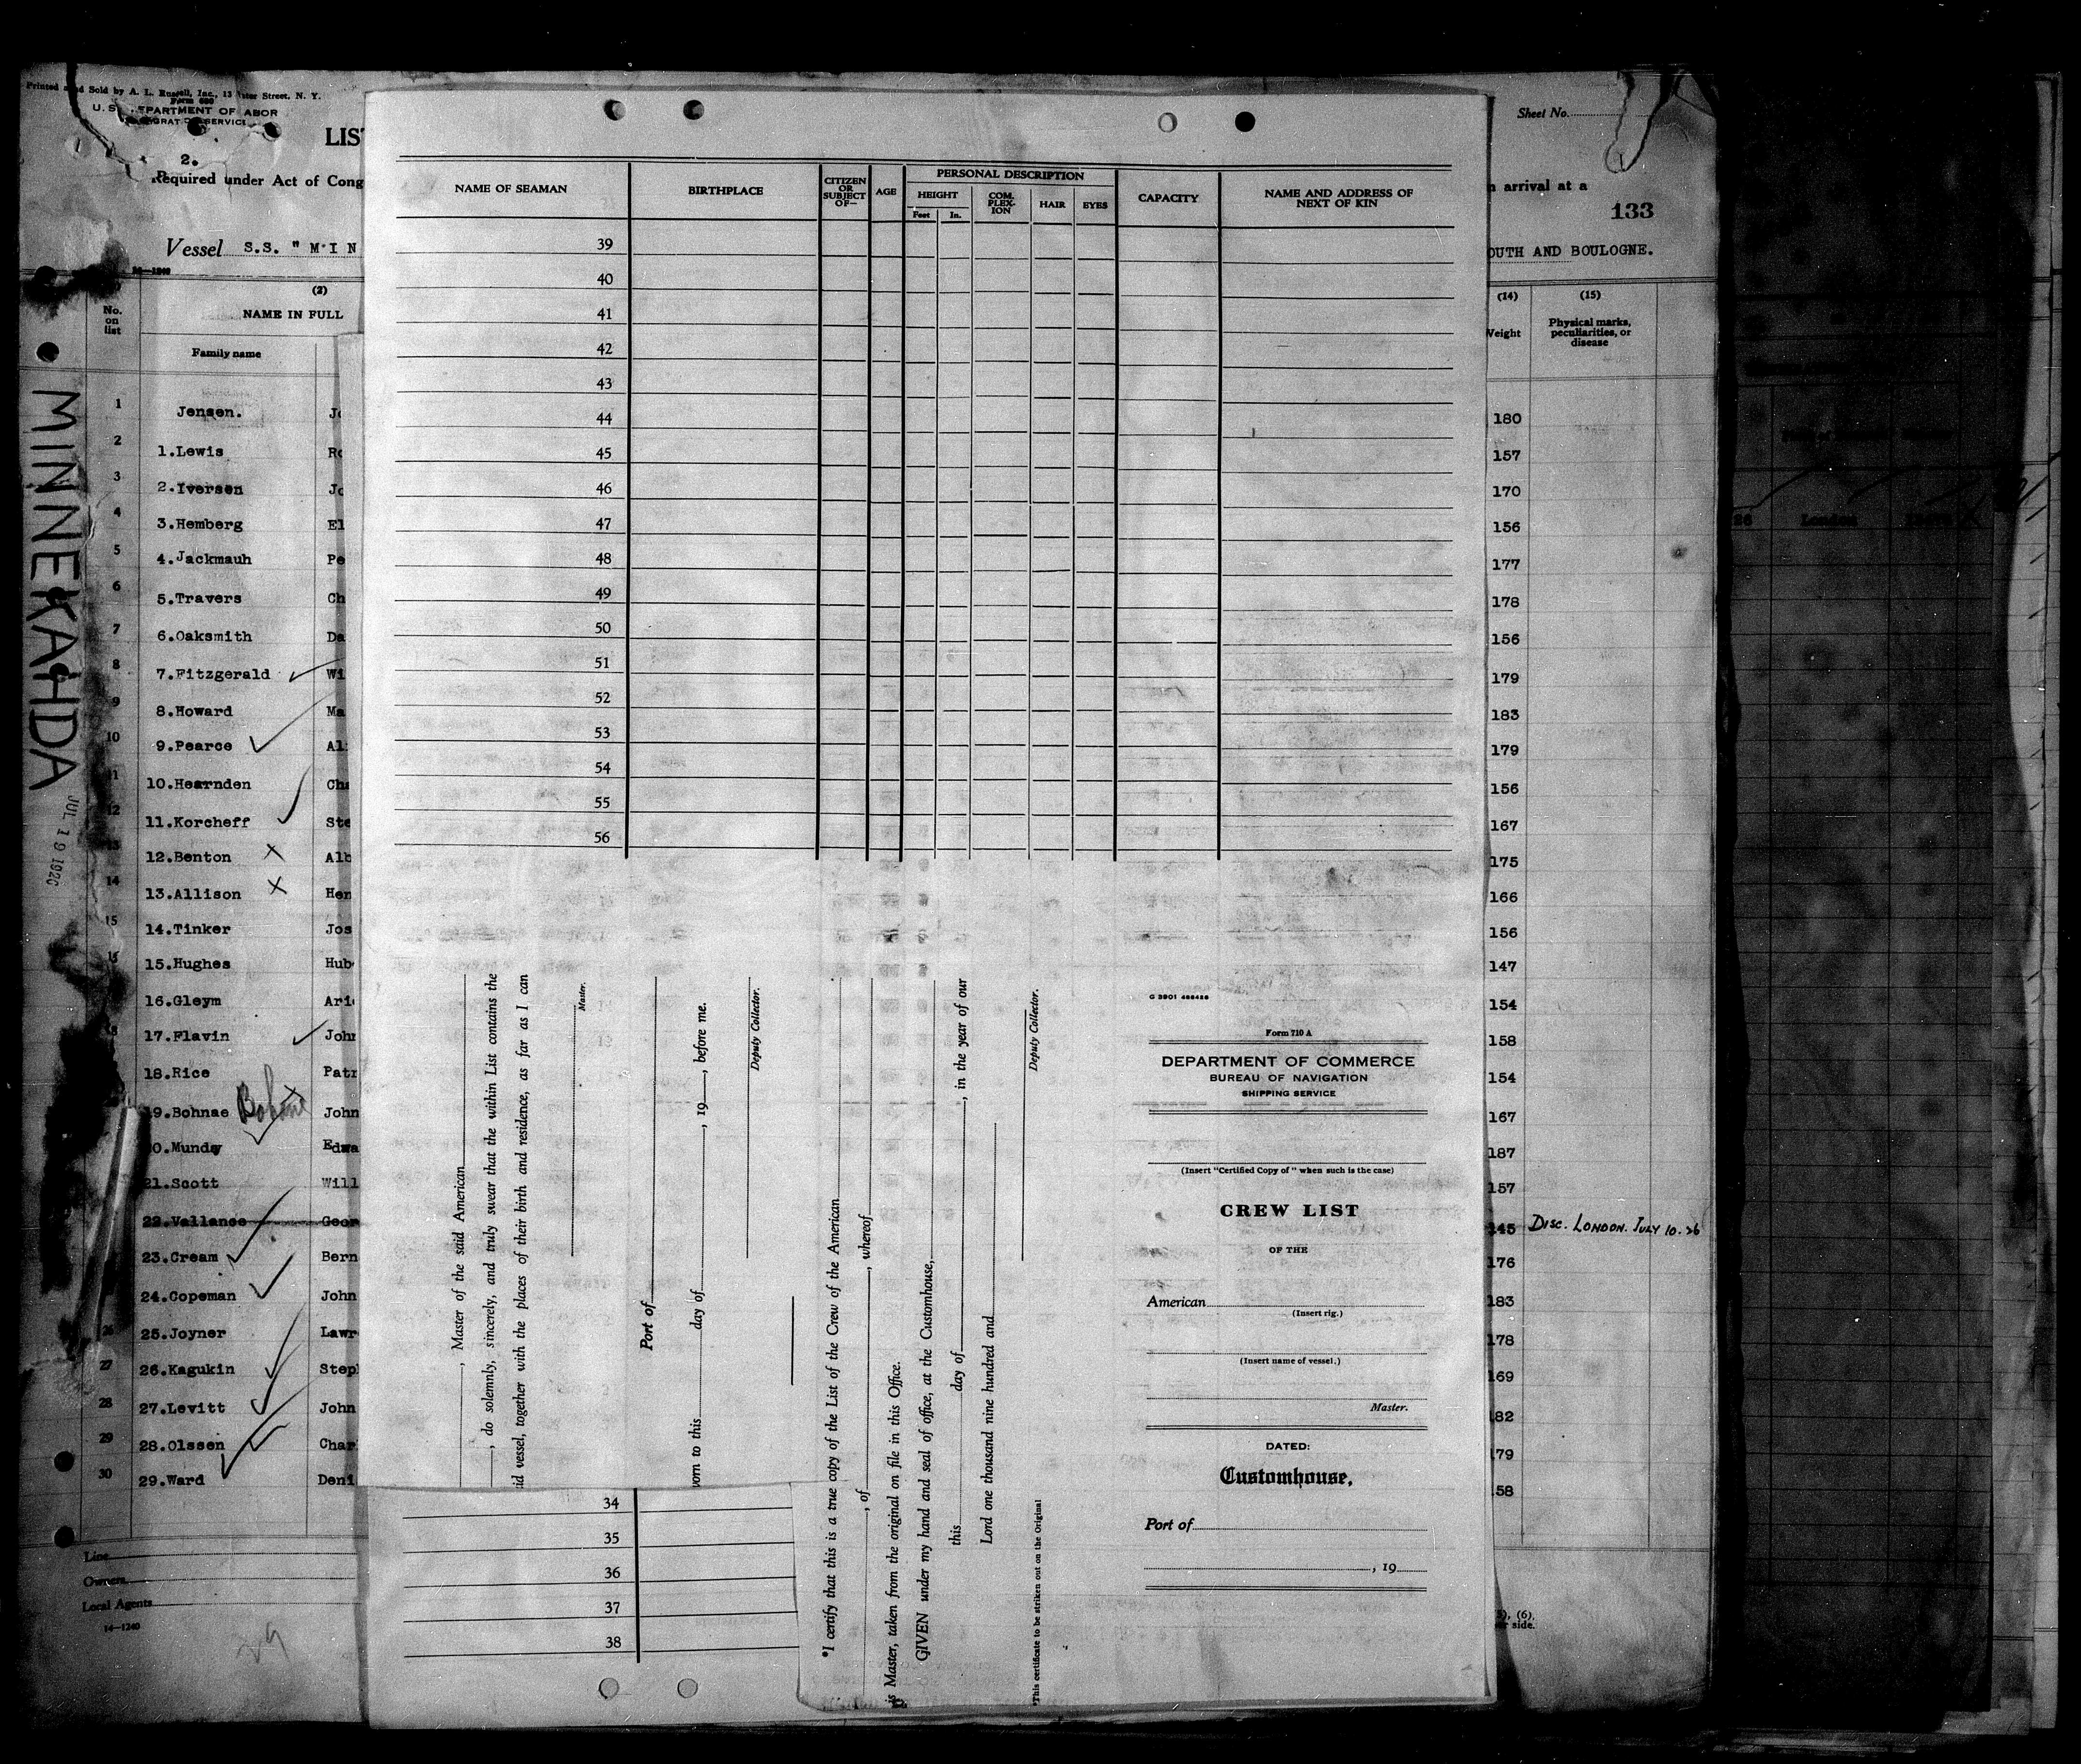 Printed and Sold by A. L. Russell, Inc., 13 Street, N. Y.
Form 680
U. S. DEPARTMENT OF LABOR
IMMIGRATION SERVICE
LIS
2.
Required under Act of Cong
Vessel S.S. "M I N
14—1240
No. on list
(2)
NAME IN FULL
Family name
1 Jensen. Jo
2 1.Lewis Ro
3 2.Iversen Jo
4 3.Hemberg El
5 4.Jackmauh Pe
6 5.Travers Ch
7 6.Oaksmith Da
8 7.Fitzgerald Wi
9 8.Howard Ma
10 9.Pearce Al
11 10.Hearnden Cha
12 11.Korcheff Ste
13 12.Benton Alb
14 13.Allison Hen
15 14.Tinker Jos
15.Hughes Hub
16.Gleym Ari
18 17.Flavin John
18.Rice Patr
19.Bohnae Bohne John
20.Mundy Edwa
21.Scott Will
22.Vallance Geor
23.Cream Bern
24.Copeman John
26 25.Joyner Lawr
27 26.Kagukin Step
28 27.Levitt John
29 28.Olssen Char
30 29.Ward Deni
Line
Owners
Local Agents
14—1240
29
MINNEKAHDA
JUL 19 1926
NAME OF SEAMAN
BIRTHPLACE
CITIZEN OR SUBJECT OF—
AGE
PERSONAL DESCRIPTION
HEIGHT
Feet In.
COM. PLEX- ION
HAIR
EYES
CAPACITY
NAME AND ADDRESS OF NEXT OF KIN
39
40
41
42
43
44
45
46
47
48
49
50
51
52
53
54
55
56
, Master of the said American
, do solemnly, sincerely, and truly swear that the within List contains the
id vessel, together with the places of their birth and residence, as far as I can
Master.
Port of
worn to this day of , 19 , before me.
Deputy Collector.
*I certify that this is a true copy of the List of the Crew of the American
, of , whereof
is Master, taken from the original on file in this Office.
GIVEN under my hand and seal of office, at the Customhouse,
this day of , in the year of our
Lord one thousand nine hundred and
Deputy Collector.
*This certificate to be striken out on the Original
G 3901 486426
Form 710 A
DEPARTMENT OF COMMERCE
BUREAU OF NAVIGATION
SHIPPING SERVICE
(Insert "Certified Copy of" when such is the case)
CREW LIST
OF THE
American
(Insert rig.)
(Insert name of vessel.)
Master.
DATED:
Customhouse,
Port of
, 19
34
35
36
37
38
Sheet No.
n arrival at a
133
OUTH AND BOULOGNE.
(14)
Weight
(15)
Physical marks, peculiarities, or disease
180
157
170
156
177
178
156
179
183
179
156
167
175
166
156
147
154
158
154
167
187
157
145 DISC. LONDON. JULY 10.26
176
183
178
169
182
179
158
), (6),
er side.
26 London